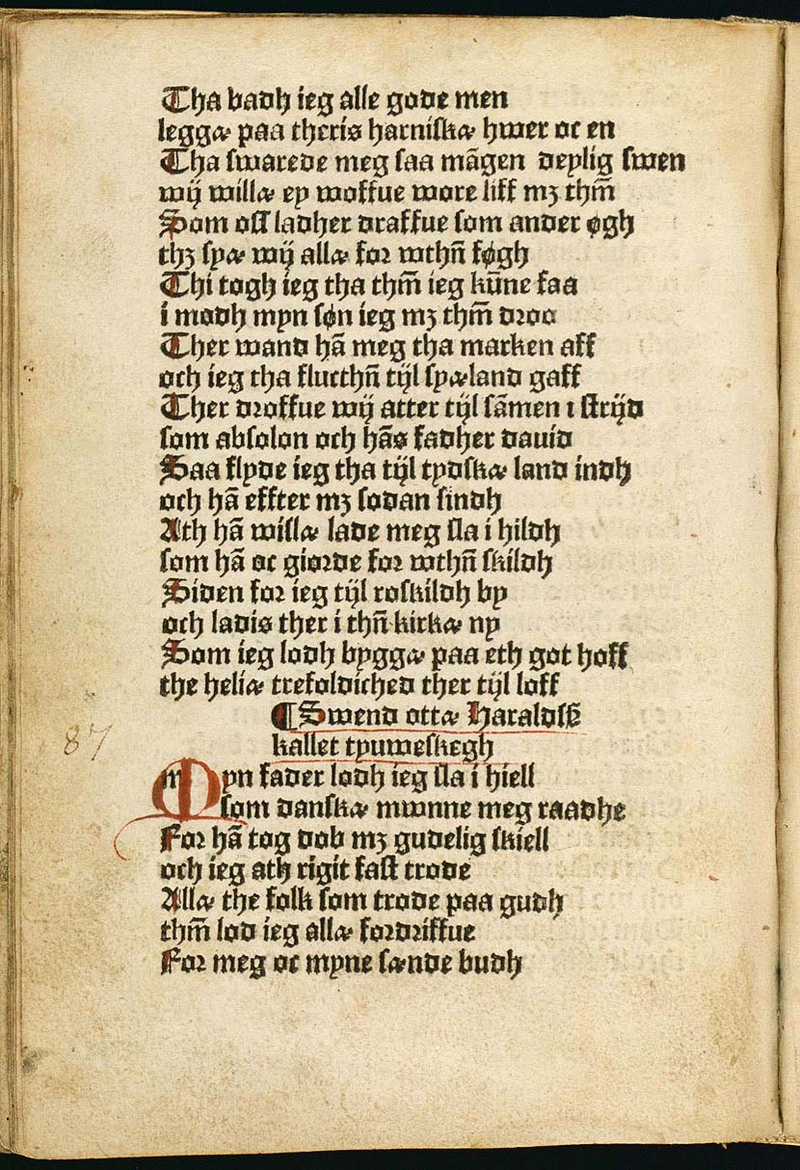 Tha badh ieg alle gode men
leggæ paa theris harniskæ hwer oc en
Tha swarede meg saa mãgen deylig swen
wij willæ ey woffue wore liff mꝫ thm̄
Som oss ladher draffue som ander øgh
thꝫ syæ wij allæ for wthn̄ føgh
Thi togh ieg tha thm̄ ieg kūne faa
i modh myn søn ieg mꝫ thm̄ droo
Ther wand hã meg tha marken aff
och ieg tha fluctthn̄ tijl syæland gaff
Ther droffue wij atter tijl sãmen i strijd
som absolon och hãs fadher dauid
Saa flyde ieg tha tijl tydskæ land indh
och hã effter mꝫ sodan sindh
Ath hã willæ lade meg sla i hildh
som hã oc giorde for wthn̄ skildh
Siden for ieg tijl roskildh by
och ladis ther i thn̄ kirkæ ny
Som ieg lodh byggæ paa eth got hoff
the heliæ trefoldiched ther tijl loff
¶ Swend ottæ Haraldsß
kallet tyuweskegh
87
Myn fader lodh ieg sla i hiell
som danskæ mwnne meg raadhe
For hã tog dob mꝫ gudelig skiell
och ieg ath rigit fast trode
Allæ the folk som trode paa gudh
thm̄ lod ieg allæ fordriffue
For meg oc myne sænde budh